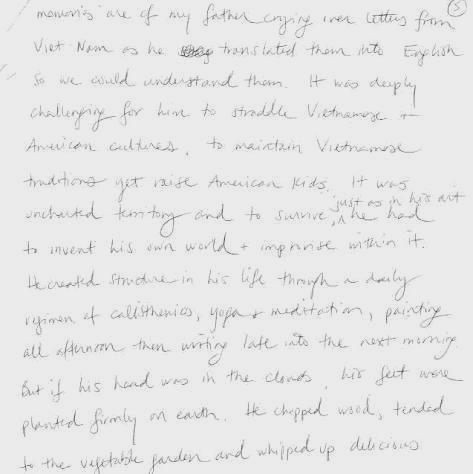 5
memories are of my father crying over letters from
Viet Nam as he translated them into English
so we could understand them. It was deeply
challenging for him to straddle Vietnamese +
American cultures, to maintain Vietnamese
traditions yet raise American kids. It was
just as in his art
uncharted territory and to survive, he had
to invent his own world + improvise within it.
He created structure in his life through a daily
regimen of callisthenics, yoga + meditation, painting
all afternoon then writing late into the next morning.
But if his head was in the clouds, his feet were
planted firmly on earth. He chopped wood, tended
to the vegetable garden and whipped up delicious